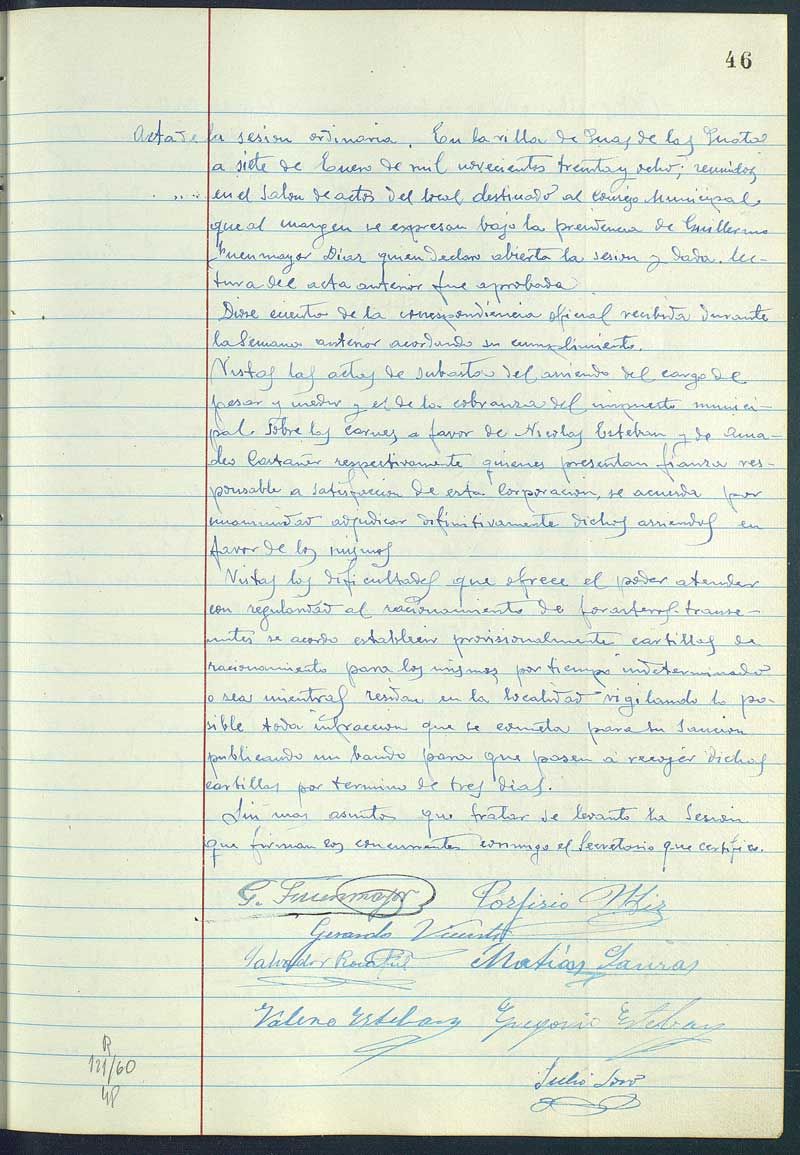 46
Acta de la sesion ordinaria. En la villa de de las
a siete de Enero de mil novecientos treinta y ocho; reunidos
en el Salon de actos del local destinado al Consejo Municipal
que al margen se expresan bajo la presidencia de Guillermo
Fuenmayor Diaz quien declaro abierta la sesion y dada lec-
tura del acta anterior fue aprobada
Diose cuenta de la correspondiencia oficial recibida durante
la semana anterior acordando su cumplimiento.
Vistas las actas de subasta del arriendo del cargo de
pesar y medir y el de la cobranza del impuesto munici-
pal sobre las carnes a favor de Nicolas Esteban y de Ama-
deo Castañer respectivamente quienes presentan fianza res-
ponsable a satisfaccion de esta Corporacion, se acuerda por
unanimidad adjudicar difinitivamente dichos arriendos en
favor de los mismos
Vistas las dificultades que ofrece el poder atender
con regularidad al racionamiento de forasteros-transe-
untes se acordo establecer provisionalmente cartillas de
racionamiento para los mismos por tiempo indeterminado
o sea mientras residan en la localidad vigilando lo po-
sible toda infraccion que se cometa para su sancion
publicando un bando para que pasen a recojer dichas
cartillas por termino de tres dias.
Sin mas asuntos que tratar se levanto la sesion
que firman los concurrentes conmigo el Secretario que certifico.
G. Fuenmayor Porfirio
Gerardo Vicente
Salvador Matías Lauras
Valero Esteban Gregorio Esteban
Julio
R
121/60